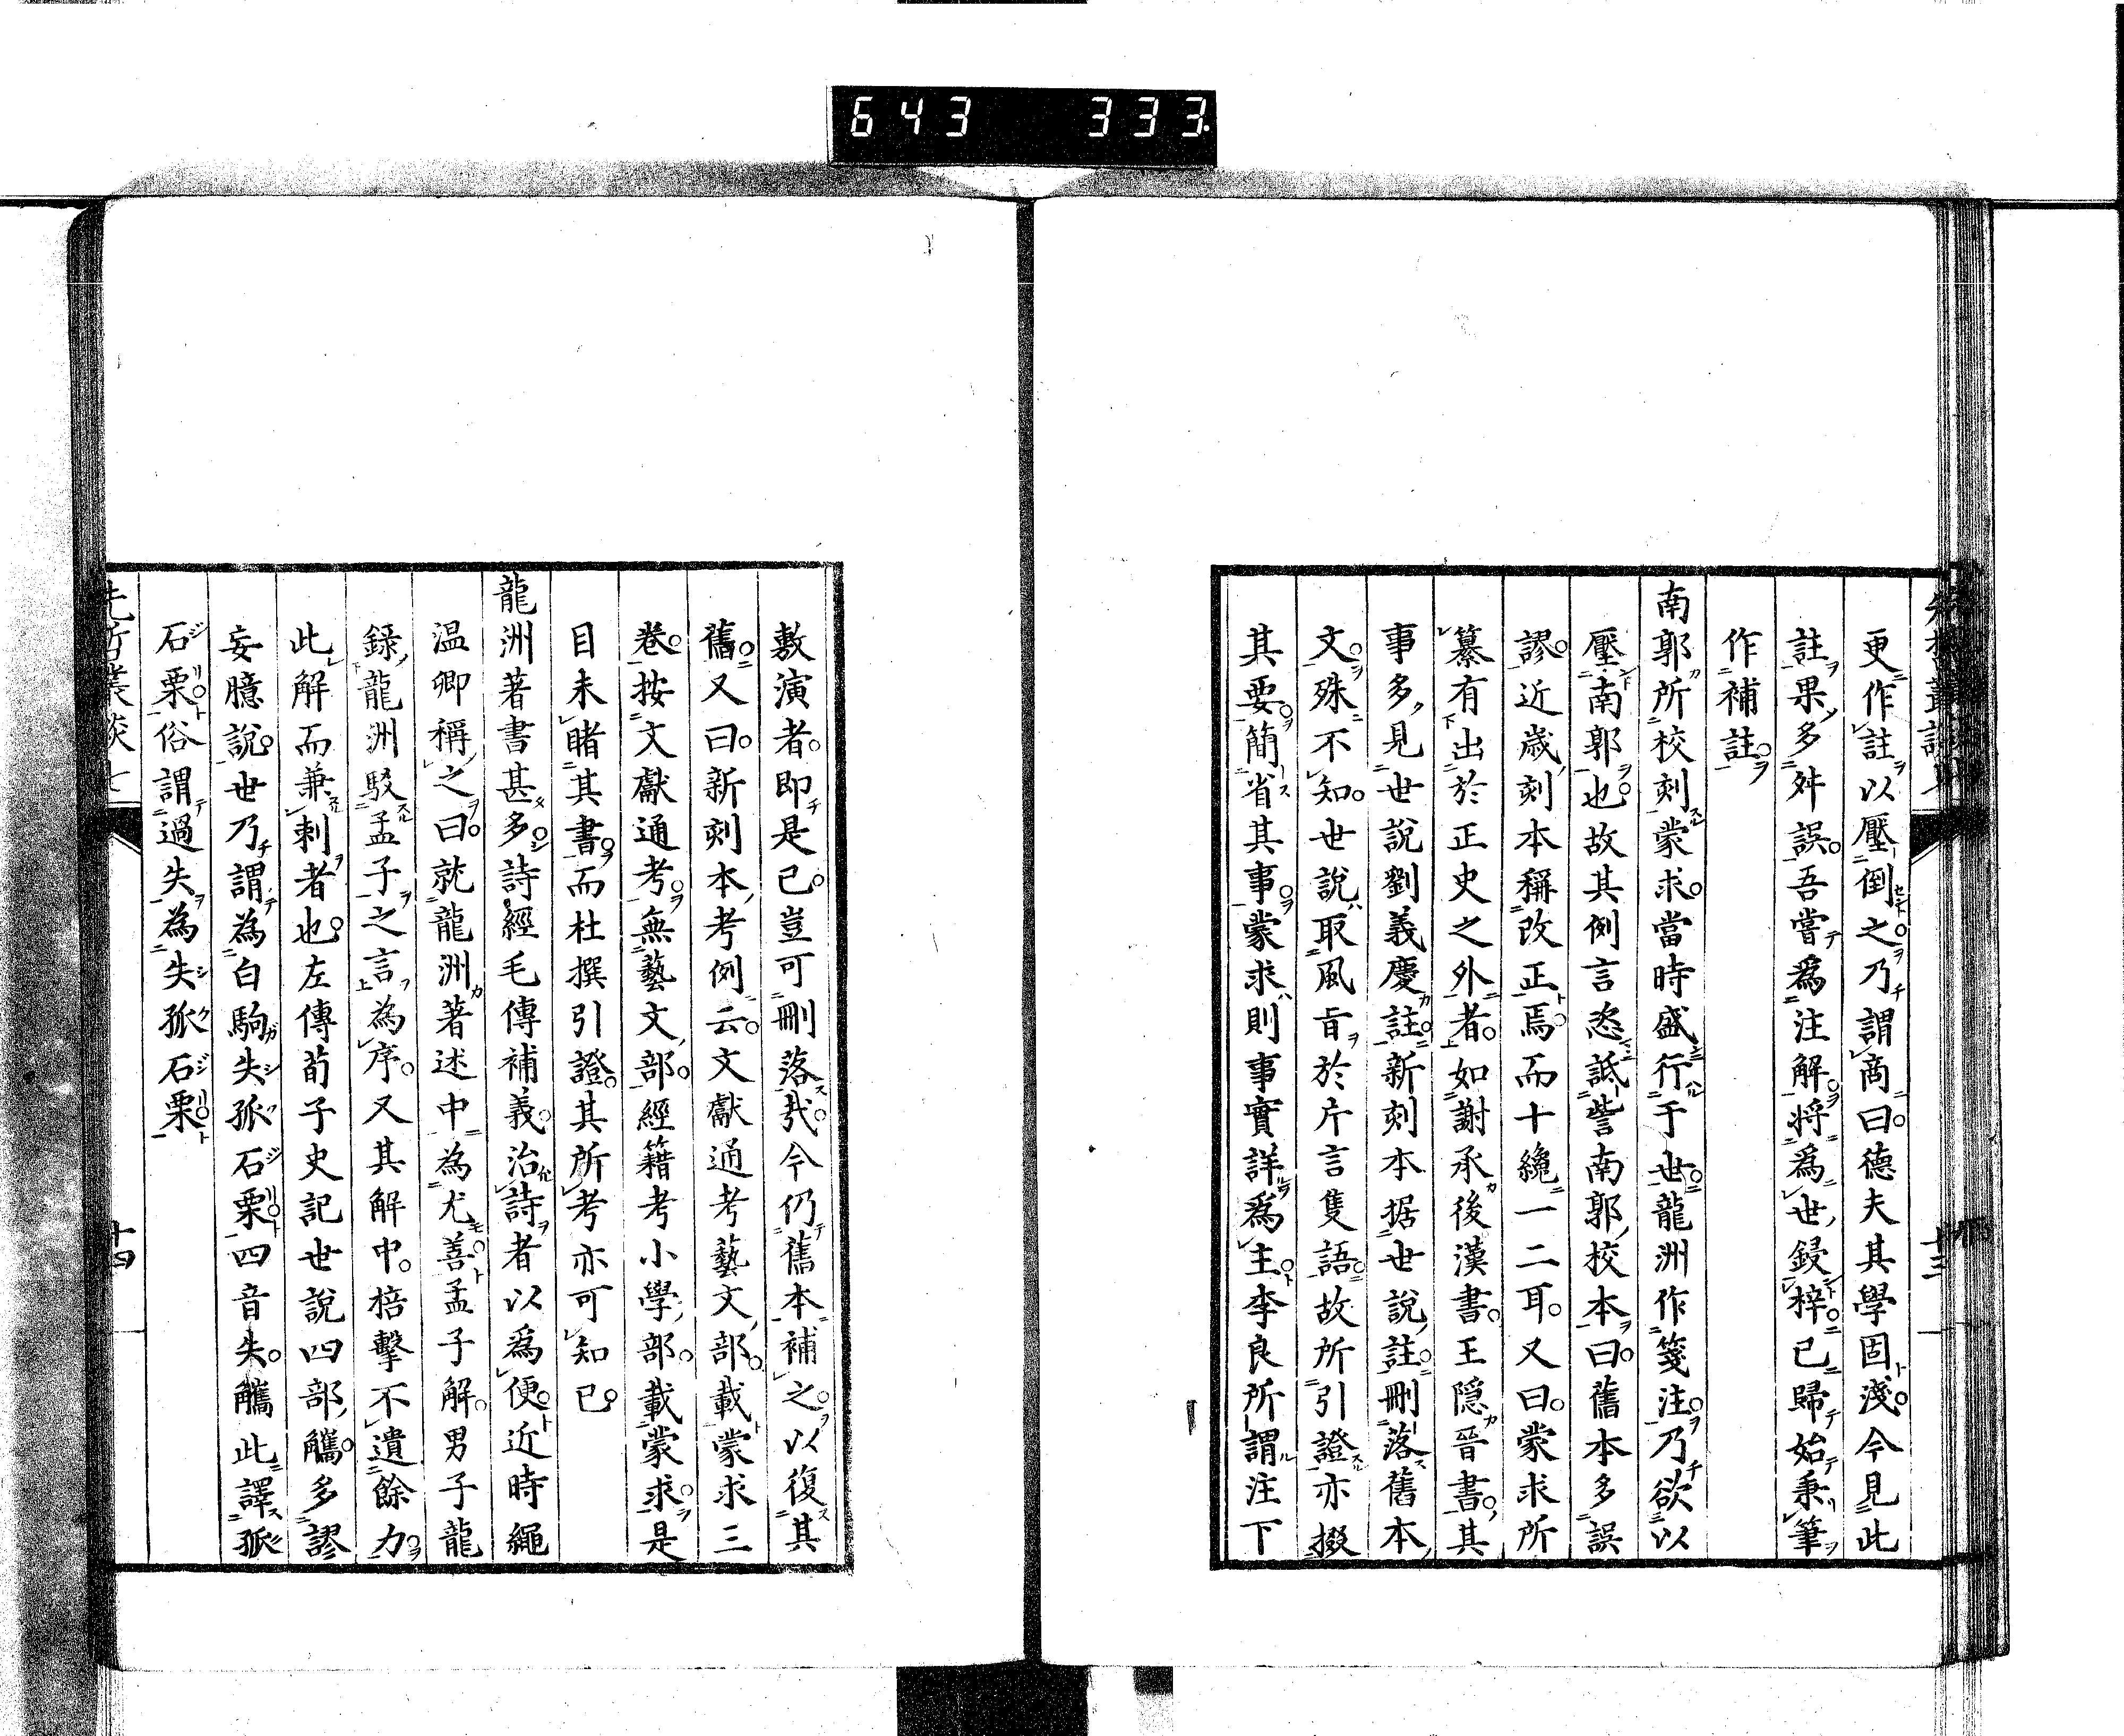 643 333
更作註以壓倒之乃謂商曰德夫其學固淺今見此
註果多舛誤吾嘗爲注解將爲世鋟梓已歸始秉筆
作補註
南郭所校刻蒙求當時盛行于世龍洲作箋注乃欲以
壓南郭也故其例言悉詆訾南郭校本曰舊本多誤
謬近歲刻本稱改正焉而十纔一二耳又曰蒙求所
纂有出於正史之外者如謝承後漢書王隱晉書其
事多見世說劉義慶註新刻本据世說註刪落舊本
文殊不知世說取風旨於片言隻語故所引證亦掇
其要簡省其事蒙求則事實詳爲主李良所謂注下
敷演者即是已豈可刪落哉今仍舊本補之以復其
舊又曰新刻本考例云文獻通考藝文部載蒙求三
卷按文獻通考無藝文部經籍考小學部載蒙求是
目未睹其書而杜撰引證其所考亦可知已
龍洲著書甚多詩經毛傳補義治詩者以爲便近時繩
温卿稱之曰就龍洲著述中為尤善孟子解男子龍
錄龍洲駁孟子之言為序又其解中掊擊不遺餘力
此解而兼刺者也左傳荀子史記世說四部觿多謬
妄臆說世乃謂為白駒失孤石栗四音失觿此譯孤
石栗俗謂過失為失孤石栗
先哲叢談七
十四
十三